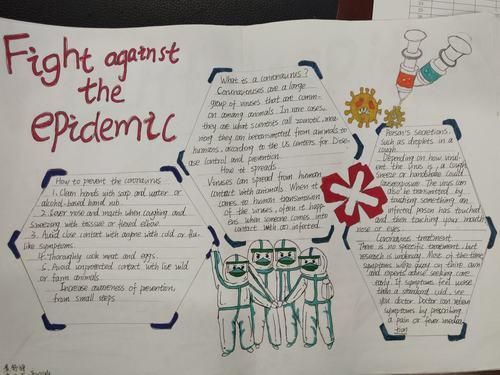 Fight against
the
epidemic
What is a coronavirus?
Coronaviruses are a large
group of viruses that are comm-
on among animals. In rare cases,
they are what scientists call zoonotic, mea-
ment they can be transmitted from animals to
humans, according to the US Centers for Dise-
ase Control and Prevention.
How it spreads
Viruses can spread from human
contact with animals. When it
comes to human transmission
of the viruses, often it happ-
ens when someone comes into
contact with an infected
Person's secretions,
such as droplets in a
cough.
Depending on how virul-
ent the virus is, a cough,
sneeze or handshake could
cause exposure. The virus can
also be transmitted by
touching something an
infected person has touched
and then touching your mouth,
nose or eyes.
Coronavirus treatment
There is no specific treatment, but
research is underway. Most of the time,
symptoms will go away on their own
and experts advise seeking care
early. If symptoms feel worse
than a standard cold, see
you doctor. Doctor can relieve
symptoms by prescribing
a pain or fever medica-
tion
How to prevent the coronavirus
1. Clean hands with soap and water or
alcohol-based hand rub.
2. Cover nose and mouth when coughing and
sneezing with tissue or flexed elbow.
3. Avoid close contact with anyone with cold or flu-
like symptoms.
4. Thoroughly cook meat and eggs.
5. Avoid unprotected contact with live wild
or farm animals.
Increase awareness of prevention
from small steps